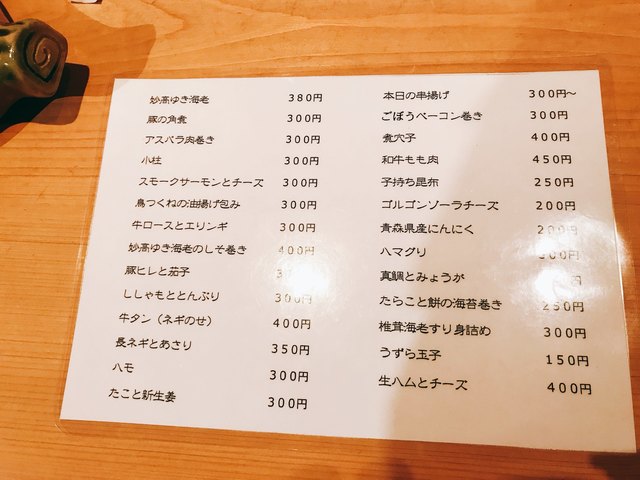 妙高ゆき海老 380円
豚の角煮 300円
アスパラ肉巻き 300円
小柱 300円
スモークサーモンとチーズ 300円
鳥つくねの油揚げ包み 300円
牛ロースとエリンギ 300円
妙高ゆき海老のしそ巻き 400円
豚ヒレと茄子
ししゃもととんぶり 300円
牛タン（ネギのせ） 400円
長ネギとあさり 350円
ハモ 300円
たこと新生姜 300円
本日の串揚げ 300円～
ごぼうベーコン巻き 300円
煮穴子 400円
和牛もも肉 450円
子持ち昆布 250円
ゴルゴンゾーラチーズ 200円
青森県産にんにく 200円
ハマグリ 300円
真鯛とみょうが 円
たらこと餅の海苔巻き 250円
椎茸海老すり身詰め 300円
うずら玉子 150円
生ハムとチーズ 400円